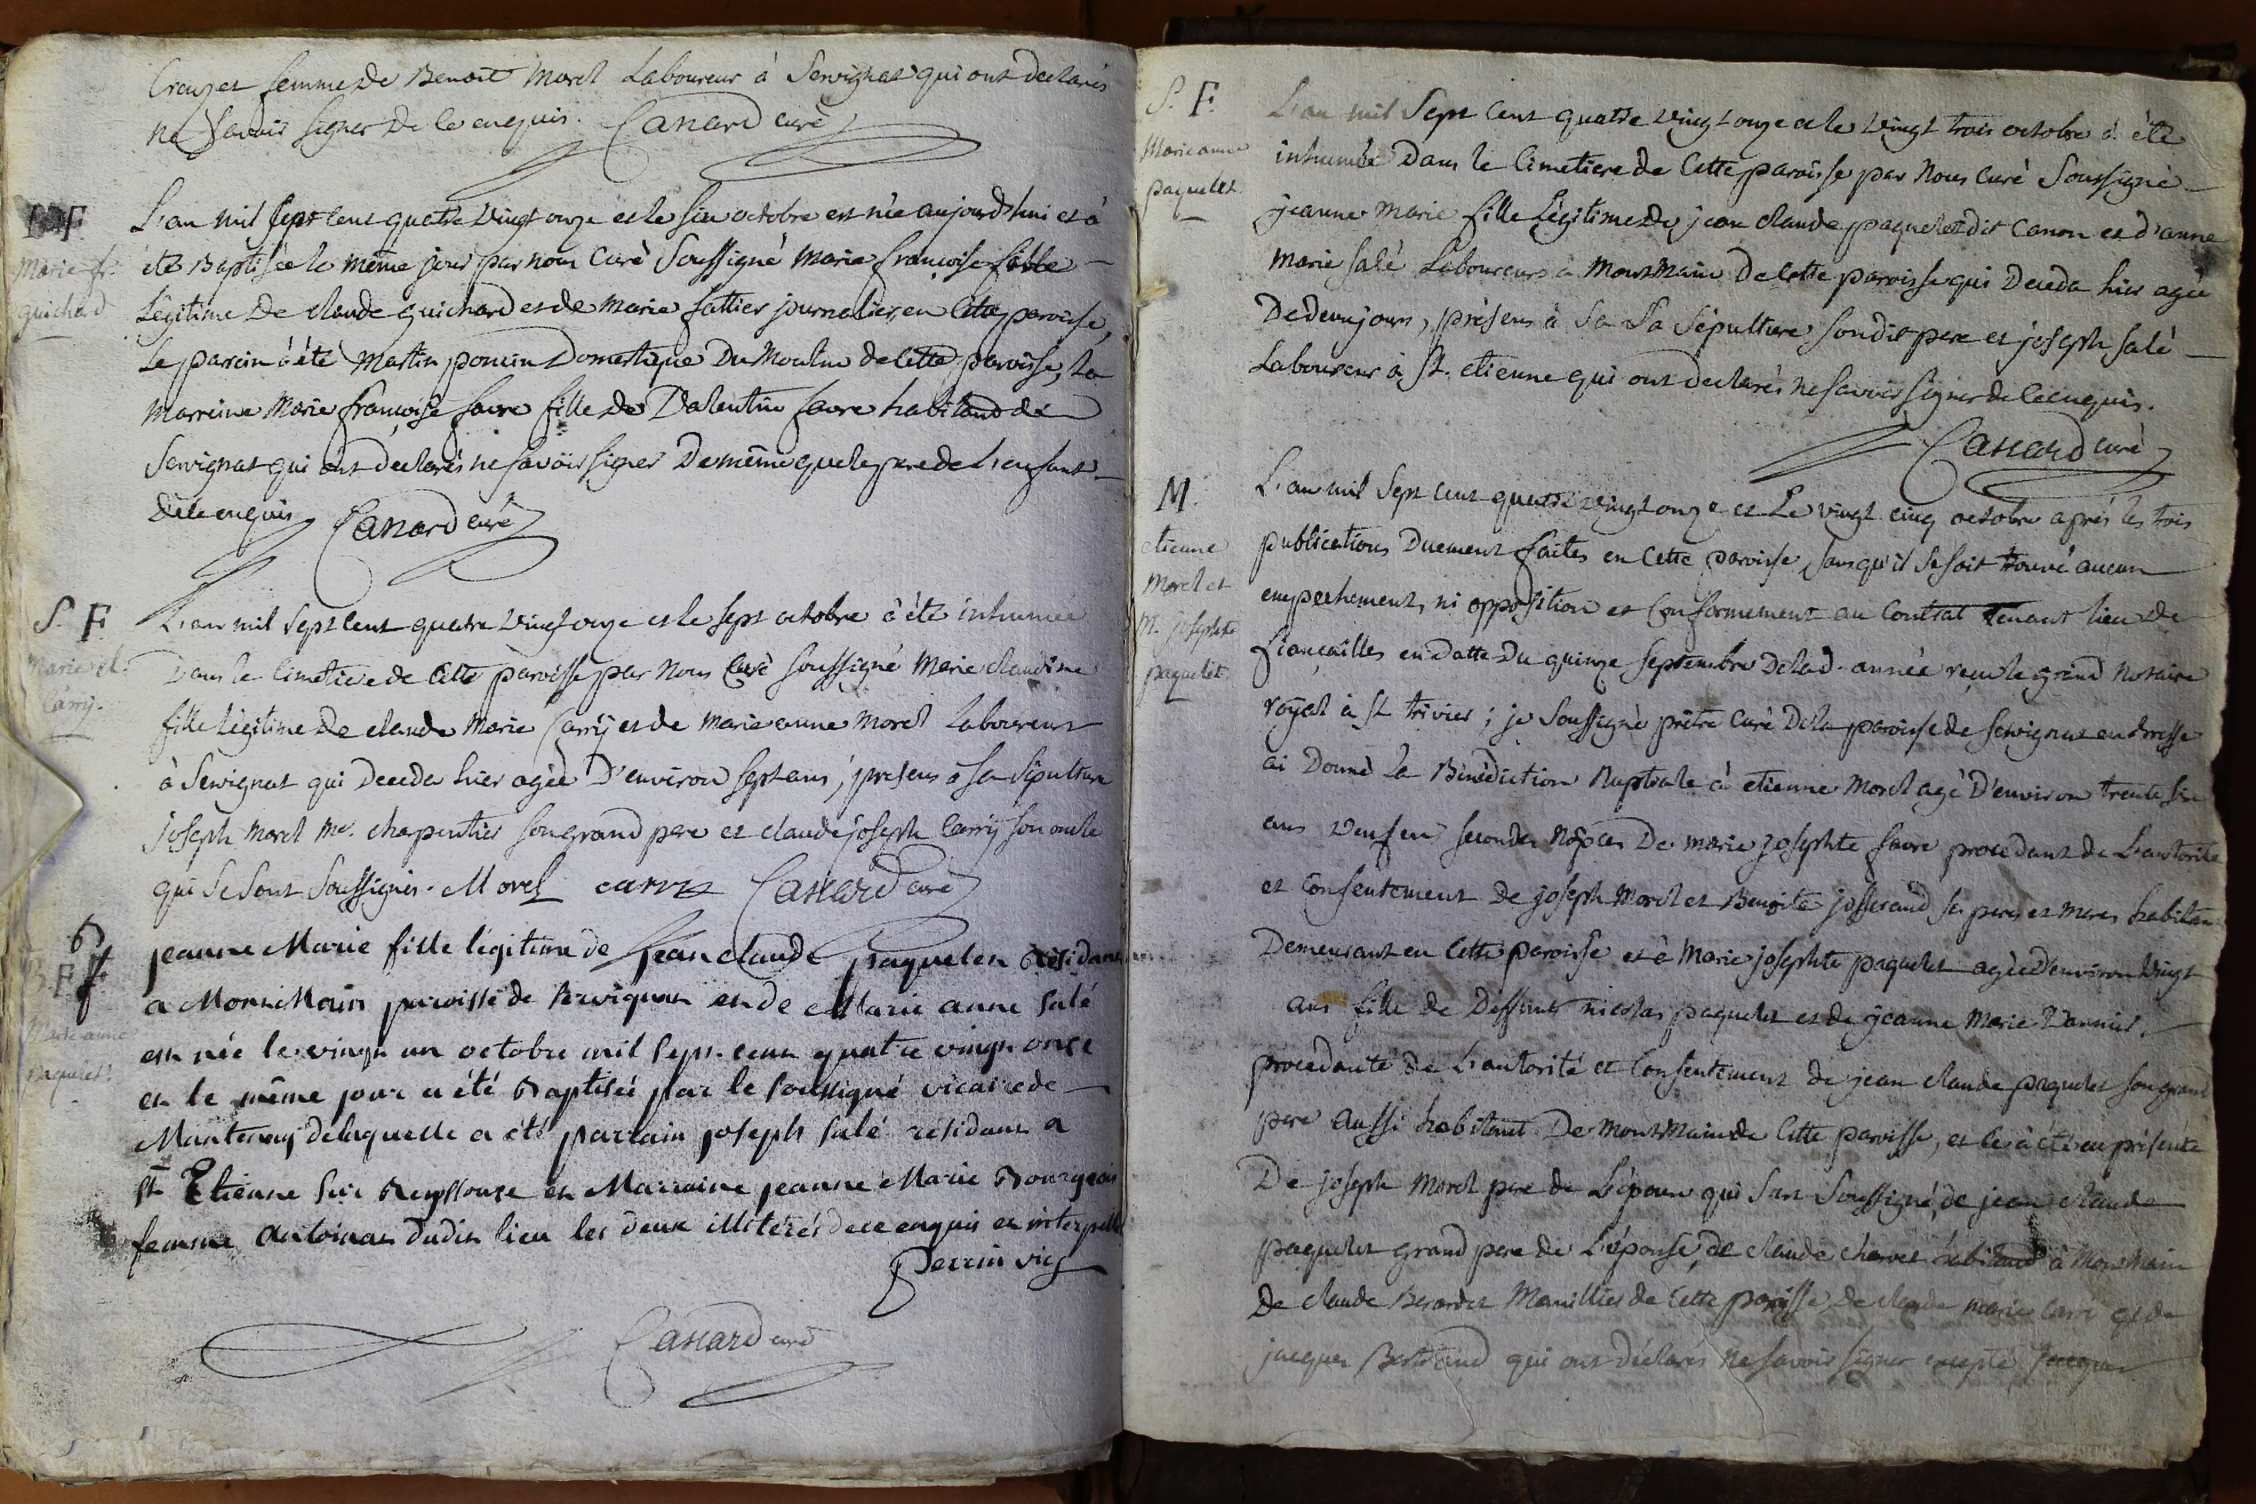 Crozet femme de Benoit Morel Laboureur à Servignat qui ont declarés
ne Savoir signer de ce enquis. Canard curé
B F
Marie fr.
guichard
L'an mil sept cent quatre vingt onze et le six octobre est née aujourd'hui et à
été Baptisée le même jour par nous Curé Soussigné Marie françoise fille
Légitime de claude guichard et de Marie fattier journaliers en Cette paroisse,
Le parein à été Martin poncin Domestique Du Moulin de Cette paroisse, La
marreine Marie françoise favre fille de Valentin favre habitand de
Servignat qui ont declarés ne savoir signer De même que le pere de L'enfant
de ce enquis Canard curé
S. F.
Marie cl.
Carrÿ.
L'an mil sept cent quatre vingt onze et le sept octobre à été inhumée
Dans le Cimetiere de Cette paroisse par Nous Curé Soussigné Marie claudine
fille légitime de claude Marie Carrÿ et de Marie anne Morel Laboureurs
à Servignat qui Deceda hier agée D'environ sept ans, presens à Sa Sépulture
joseph Morel me. charpentier Son grand pere et claude joseph Carrÿ son oncle
qui Se Sont Soussignés. Morel carry Canard curé
B F
Marie anne
paquelet.
jeanne Marie fille légitime de jean claude paquelet Résidant
a Mont Main paroisse de Servignat et de Marie anne Salé
est née le vingt un octobre mil sept cent quatre vingt onze
et le même jour a été Baptisée par le soussigné vicaire de
Mantenay delaquelle a été parrain joseph Salé résidant a
St Etienne Sur Reyssouze et Marraine jeanne Marie Bourgeois
femme dudit lieu les deux illitérés de ce enquis et interpellé
Perrin vic
Canard curé
S. F.
Marie anne
paquelet.
L'an mil Sept Cent quatre vingt onze et le vingt trois octobre à été
inhumée Dans le Cimetiere de Cette paroisse par Nous Curé Soussigné
jeanne Marie fille Légitime de jean claude paquelet dit Canon et d'anne
Marie salé Laboureurs à MontMain De Cette paroisse qui Deceda hier agée
De deux jours, présens à Sa La Sépulture Son dit pere et joseph salé
Laboureur à St. etienne qui ont declarés ne savoir signer de Ce enquis.
Canard curé
M.
etienne
Morel et
M. josephte
paquelet
L'an mil Sept cent quatre vingt onze et Le vingt cinq octobre après les trois
publications Duement faites en Cette paroisse, sans qu'il Se soit trouvé aucun
empechement, ni opposition et Conformement au Contrat tenant lieu de
fiançailles en datte du quinze Septembre De lad. année reçu le grand Notaire
royal à St trivier; je Soussigné prêtre Curé De la paroisse de Servignat en Bresse
ai Donné la Bénédiction Nuptiale à etienne Morel agé D'environ trente six
ans veuf en secondes Nopces De marie josephte favre procedant de L'autorité
et Consentement de joseph Morel et Benoite josserand Ses peres et meres habitan
Demeurant en Cette paroisse et à Marie josephte paquelet agée d'environ vingt
ans fille de Deffunt nicolas paquelet et de jeanne Marie Vannier
procedante de L'autorité et Consentement de jean claude paquelet son grand
pere aussi habitant De MontMain de Cette paroisse, et ce à été en présence
De joseph Morel pere de L'époux qui S'est Soussigné, de jean claude
paquelet grand pere de L'épouse, de claude charvet habitand à MontMain
De claude Berardet Manillier de Cette paroisse, de claude marie carri et de
jacques Bertrand qui ont déclarés ne savoir signer excepté jacques